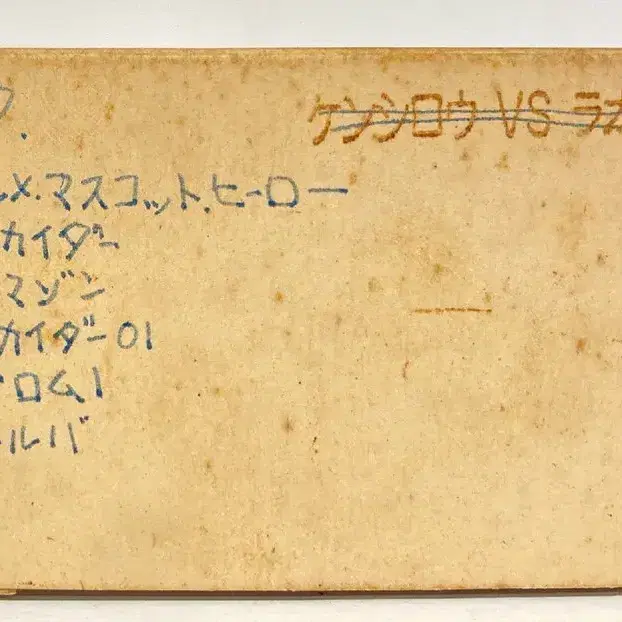 ケンシロウ VS ラオ
メ.マスコット.ヒーロー
カイダー
マゾン
カイダー01
ロム1
ールバ